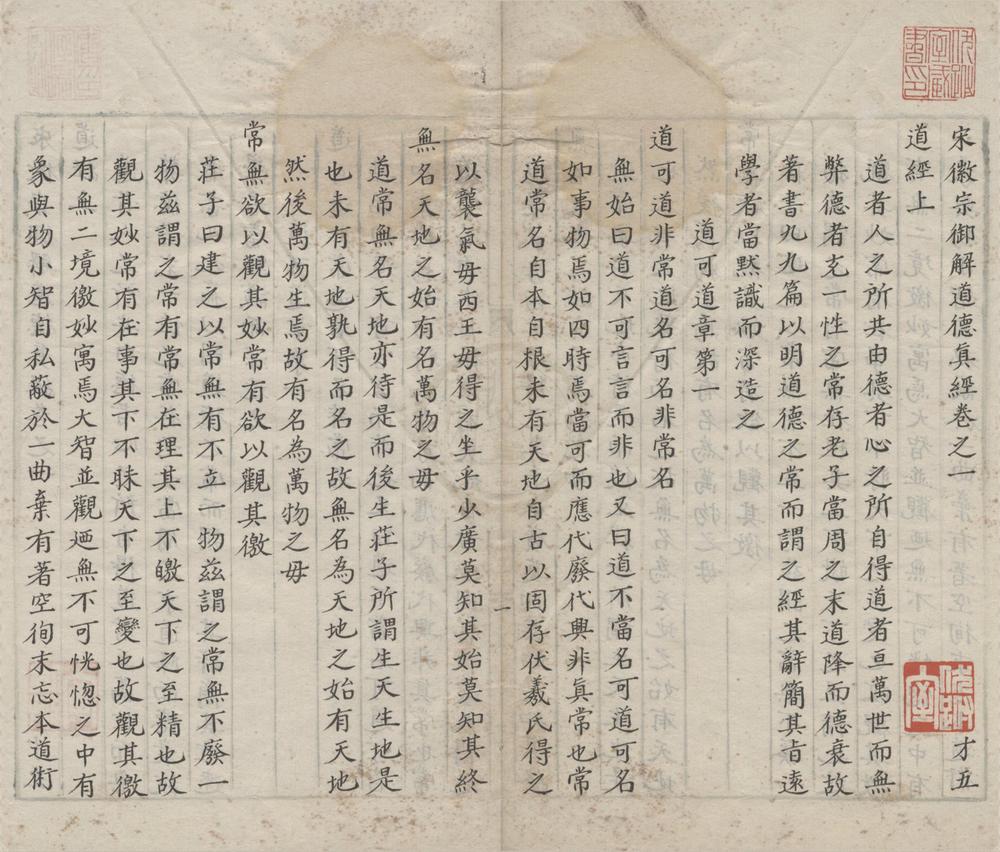 宋徽宗御解道德眞經卷之一
才五
道經上
道者人之所共由德者心之所自得道者亘萬世而無
弊德者充一性之常存老子當周之末道降而德衰故
著書九九篇以明道德之常而謂之經其辭簡其旨遠
學者當默識而深造之
道可道章第一
道可道非常道名可名非常名
無始曰道不可言言而非也又曰道不當名可道可名
如事物焉如四時焉當可而應代廢代興非眞常也常
道常名自本自根未有天地自古以固存伏羲氏得之
一
以襲氣毋西王毋得之坐乎少廣莫知其始莫知其終
無名天地之始有名萬物之毋
道常無名天地亦待是而後生莊子所謂生天生地是
也未有天地孰得而名之故無名為天地之始有天地
然後萬物生焉故有名為萬物之毋
常無欲以觀其妙常有欲以觀其徼
莊子曰建之以常無有不立一物茲謂之常無不廢一
物茲謂之常有常無在理其上不皦天下之至精也故
觀其妙常有在事其下不昧天下之至變也故觀其徼
有無二境徼妙寓焉大智並觀廼無不可恍惚之中有
象與物小智自私蔽於一曲棄有著空徇末忘本道術